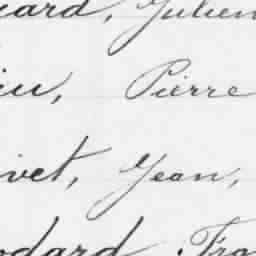 iard, Julien
ieu, Pierre
ivet, Jean,
odard, Fra